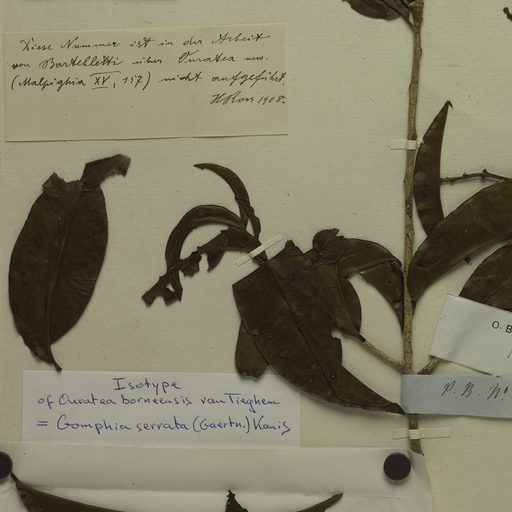 Diese Nummer ist in der Arbeit
von Bartelletti über Ouratea usw.
(Malpighia XV, 157) nicht aufgeführt.
H Ross 1908.
O. B
Isotype
of Ouratea borneensis van Tieghem
= Gomphia serrata (Gaertn.) Kanis
P. B. No